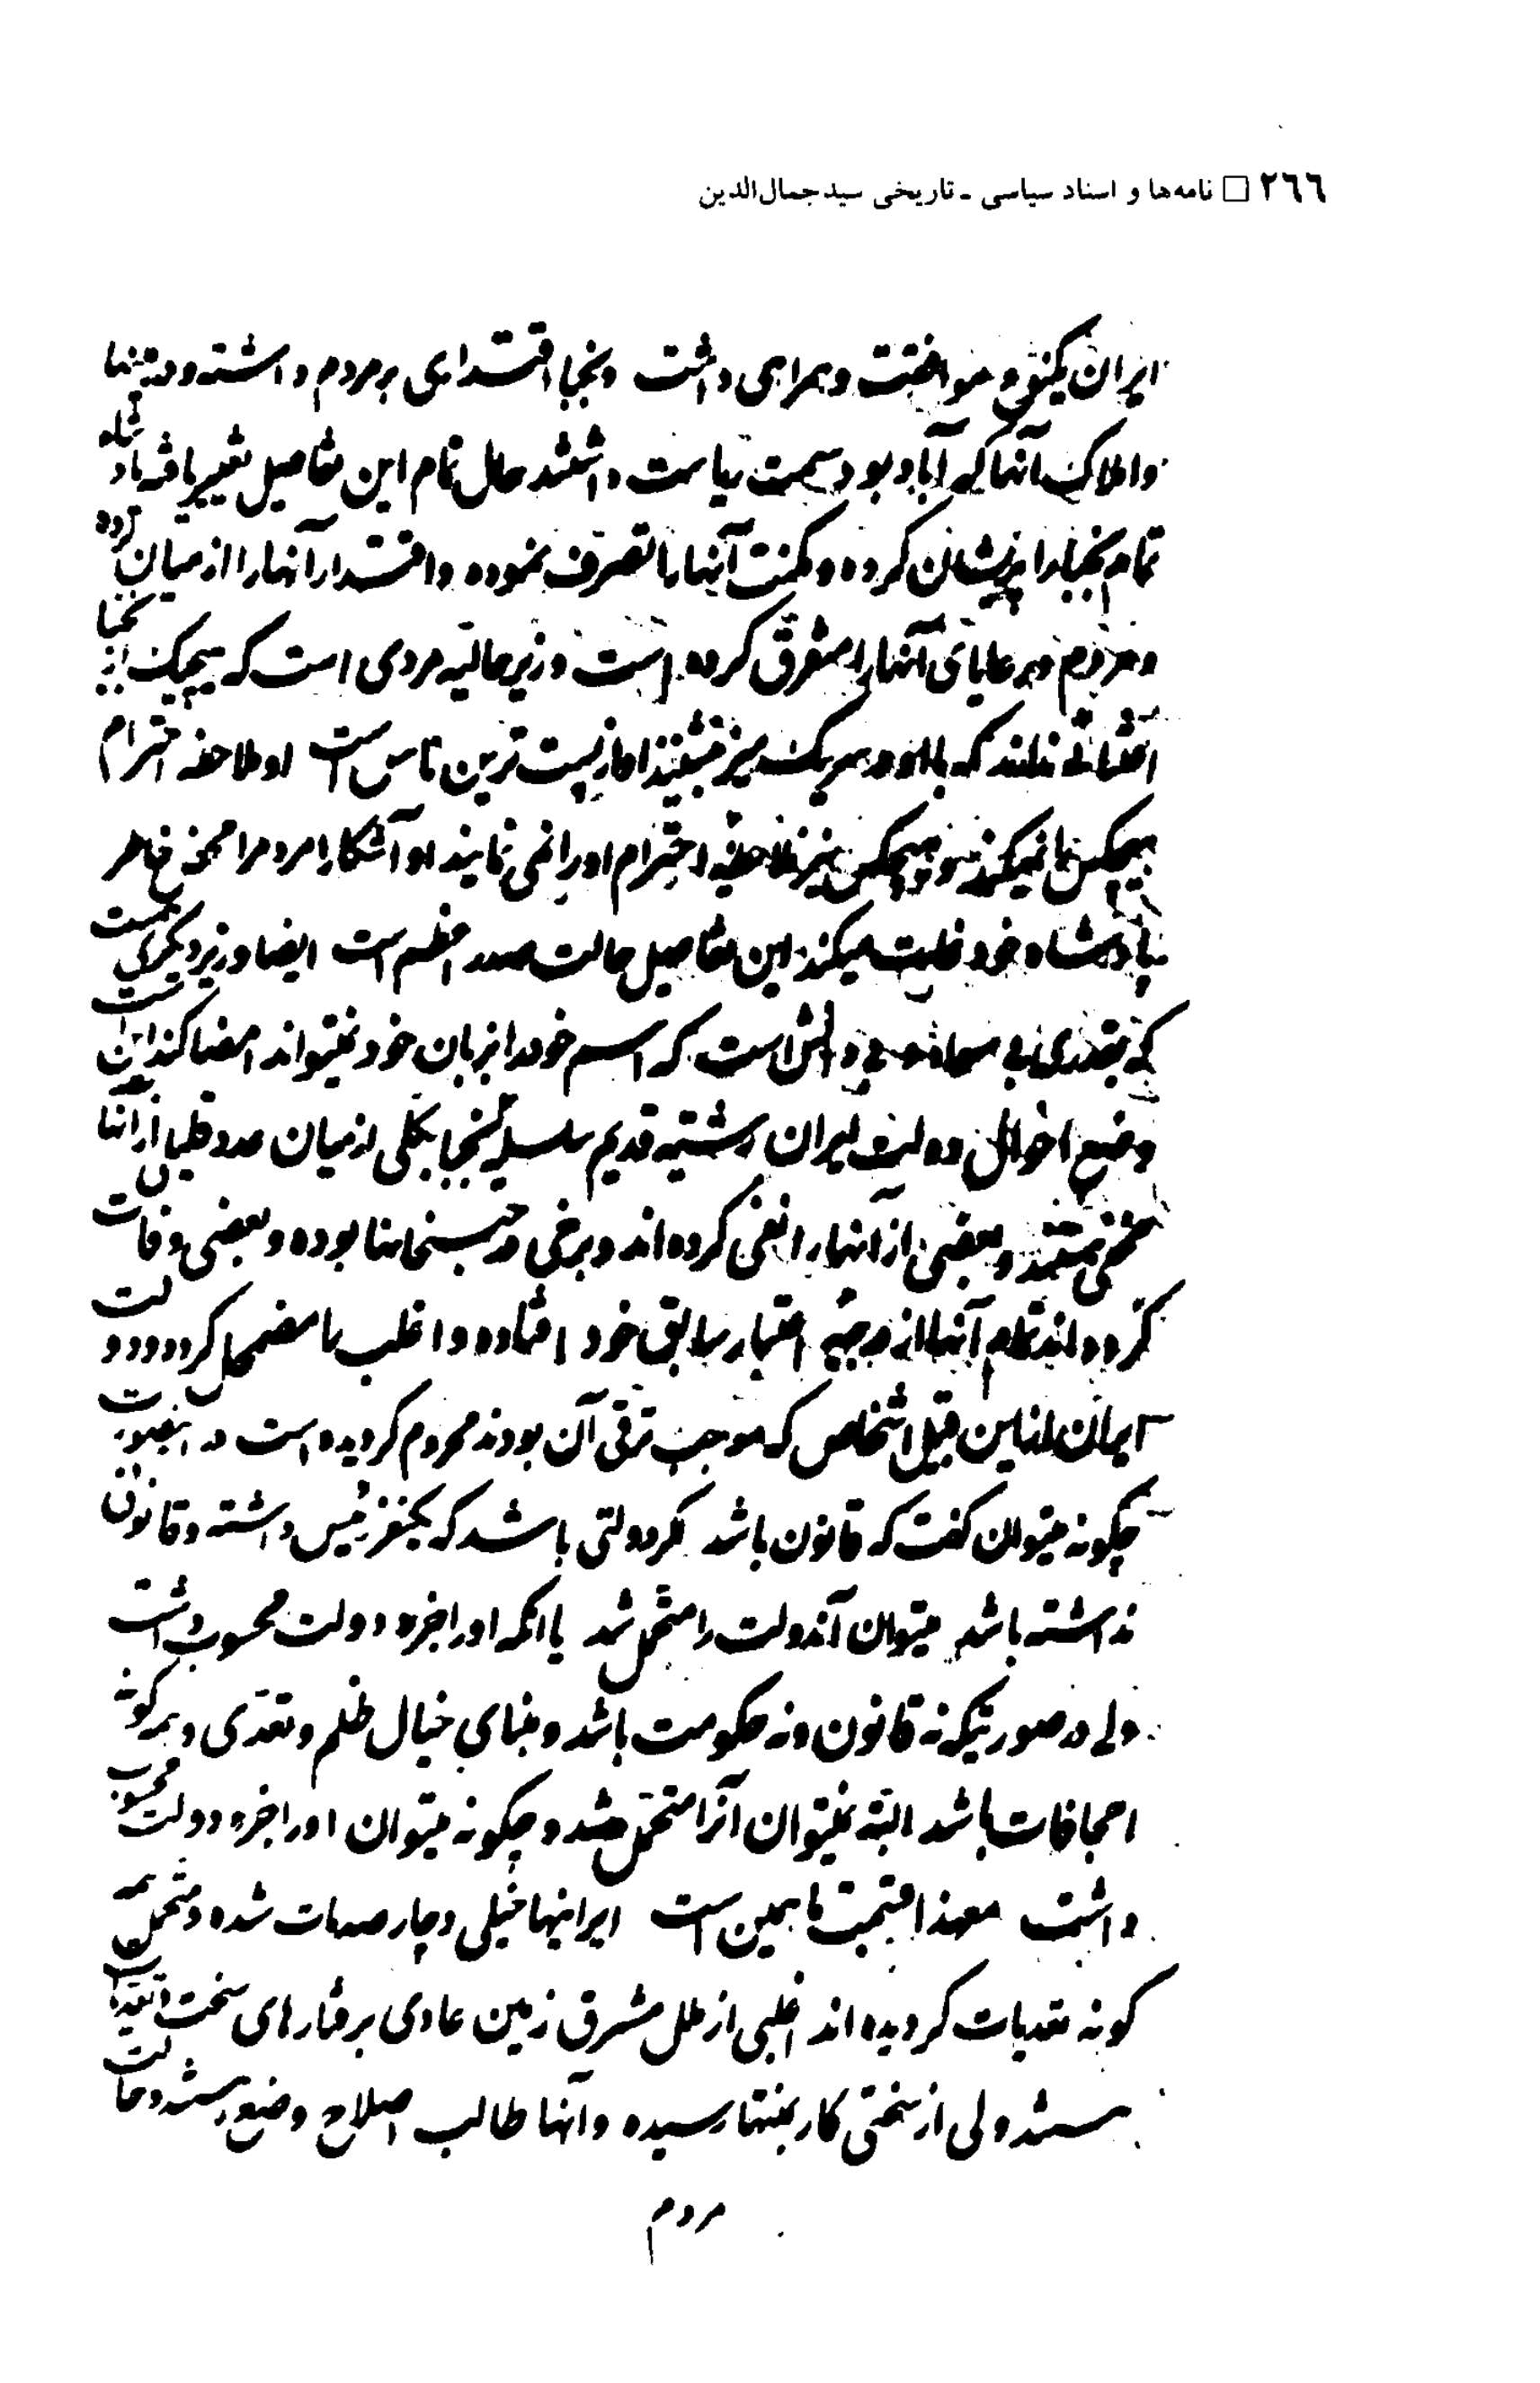 ٢٦٦ □ نامه‌ها و اسناد سیاسی ـ تاریخی سید جمال‌الدین
ایران یکنوع موافقت و همراهی داشت و نجبا اقتداری بر مردم داشته و دهتها
و املاک آنها که آباد بود سمت ریاست داشتند حال تمام این تفاصیل تغییر یافته پادشاه
تمام نجبا را پریشان کرده و مکنت آنها را تصرف نموده و اقتدار آنها را از میان برده
و مردم و رعایای آنها را متفرق کرده است وزیر حالیه مردی است که هیچیک از نجبا
اعتنائی ندارند که با او در سر یک میز بنشینند او از پست ترین ناس است او ملاحظه احترام
هیچکس را نمیکند و هیچکس نیز ملاحظه احترام او را نمی نمایند او آشکارا مردم را
پادشاه خود غلبت میکند این تفاصیل حالت صدر اعظم است ایضا وزیر دیگری هست
که بقدری بی سواد و بی دانش است که اسم خود را بزبان خود نمیتواند امضا کند این است
وضع احوال دولت ایران رشته قدیم سلسله نجبا بکلی از میان رفته و قلیلی از آنها
مخفی هستند و بعضی از آنها را نفی کرده اند و برخی در حبسخانها بوده و بعضی وفات
کرده اند تمام آنها از درجه اعتبار سابق خود افتاده و اغلب را مضمحل کرده و دولت
ایران از این قبیل اشخاص که موجب ترقی آن بودند محروم گردیده است در اینصورت
چگونه میتوان گفت که قانون باشد اگر دولتی باشد که یکنفر رئیس داشته و قانون
نداشته باشد میتوان آندولت را متحمل شد یا آنکه او را جزء دولت محسوب داشت
ولی در صورتیکه نه قانون و نه حکومت باشد و بنای خیال ظلم و تعدی و همه گونه
اجحافات باشد البته نمیتوان آنرا متحمل شد و چگونه میتوان او را جزء دولت محسوب
داشت معهذا قیمت ما همین است ایرانیها خیلی دچار صدمات شده و متحمل همه
گونه تعدیات گردیده اند اغلبی از ملل مشرق زمین عادی برفتارهای سخت و تعدیات
هستند ولی از سختی کار بمنتها رسیده و آنها طالب اصلاح وضع هستند و حالت
مردم